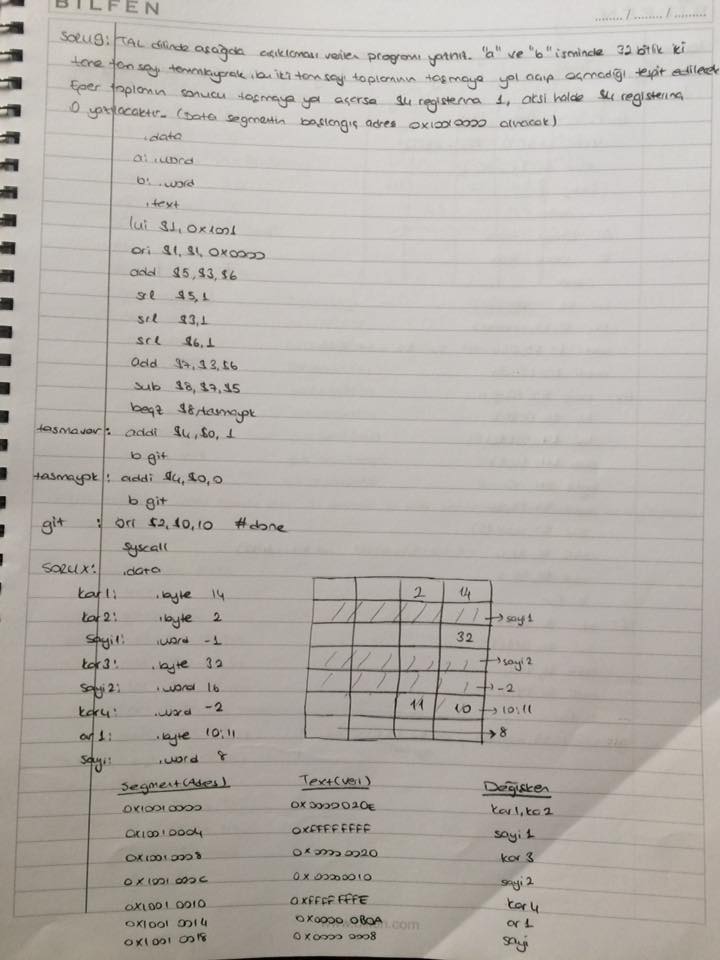 BILFEN
....../....../.........
SORU9: TAL dilinde aşağıda açıklaması verilen programı yazınız. "a" ve "b" isminde 32 bitlik iki
tane tam sayı tanımlayarak, bu iki tam sayı toplamının taşmaya yol açıp açmadığı tespit edilecek
Eğer toplamın sonucu taşmaya yol açarsa $4 registerına 1, aksi halde $4 registerına
0 yazılacaktır. (Data segmentin başlangıç adres 0x10010000 alınacak)
.data
a: .word
b: .word
.text
lui $1, 0x1001
ori $1, $1, 0x0000
add $5, $3, $6
srl $5, 1
srl $3, 1
srl $6, 1
add $7, $3, $6
sub $8, $7, $5
beqz $8, tasmayok
tasmavar: addi $4, $0, 1
b git
tasmayok: addi $4, $0, 0
b git
git : ori $2, $0, 10 #done
syscall
SORUX: .data
kar1: .byte 14
kar2: .byte 2
sayi1: .word -1
kar3: .byte 32
sayi2: .word 16
kar4: .word -2
ar1: .byte 10, 11
sayi: .word 8
2 14
→ sayi1
32
→ sayi2
→ -2
11 10 → 10, 11
→ 8
Segment (Adres) Text (Veri) Değişken
0x10010000 0x0000020E kar1, kar2
0x10010004 0xFFFFFFFF sayi1
0x10010008 0x00000020 kar3
0x1001000C 0x00000010 sayi2
0x10010010 0xFFFFFFFE kar4
0x10010014 0x00000B0A ar1
0x10010018 0x00000008 sayi